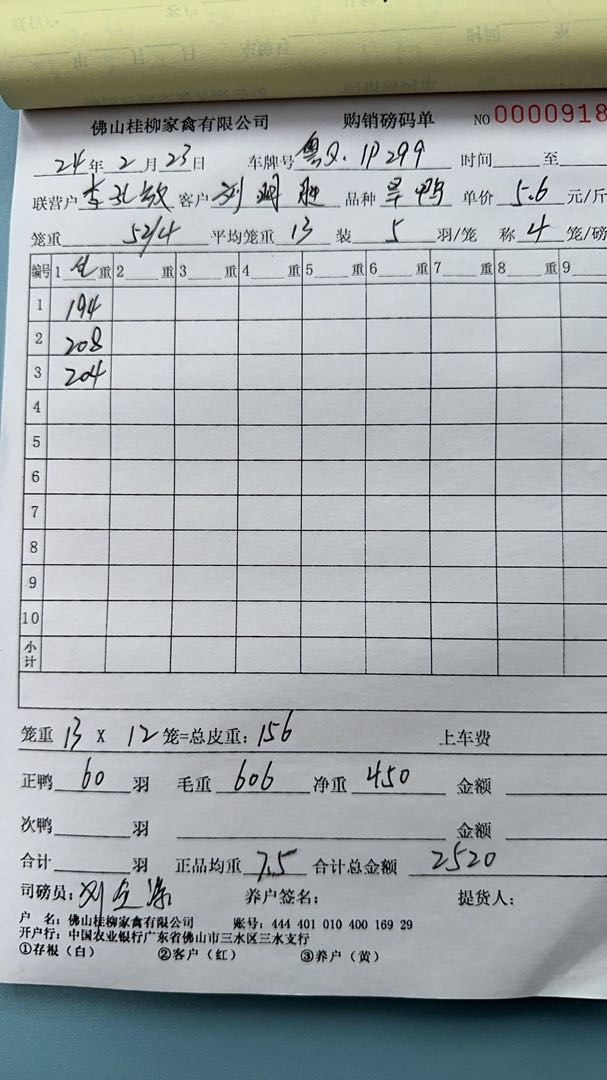 佛山桂柳家禽有限公司 购销磅码单 NO 0000918
24年2月23日 车牌号 粤 299 时间 至
联营户 李孔敏 客户 刘 品种 旱鸭 单价 5.6 元/斤
笼重 52/4 平均笼重 13 装 5 羽/笼 称 4 笼/磅
编号 1 毛重 2 重 3 重 4 重 5 重 6 重 7 重 8 重 9
1 194
2 208
3 204
4
5
6
7
8
9
10
小计
笼重 13 X 12 笼=总皮重: 156 上车费
正鸭 60 羽 毛重 606 净重 450 金额
次鸭 羽 金额
合计 羽 正品均重 7.5 合计总金额 2520
司磅员: 刘 养户签名: 提货人:
户 名: 佛山桂柳家禽有限公司 账号: 444 401 010 400 169 29
开户行: 中国农业银行广东省佛山市三水区三水支行
①存根（白） ②客户（红） ③养户（黄）